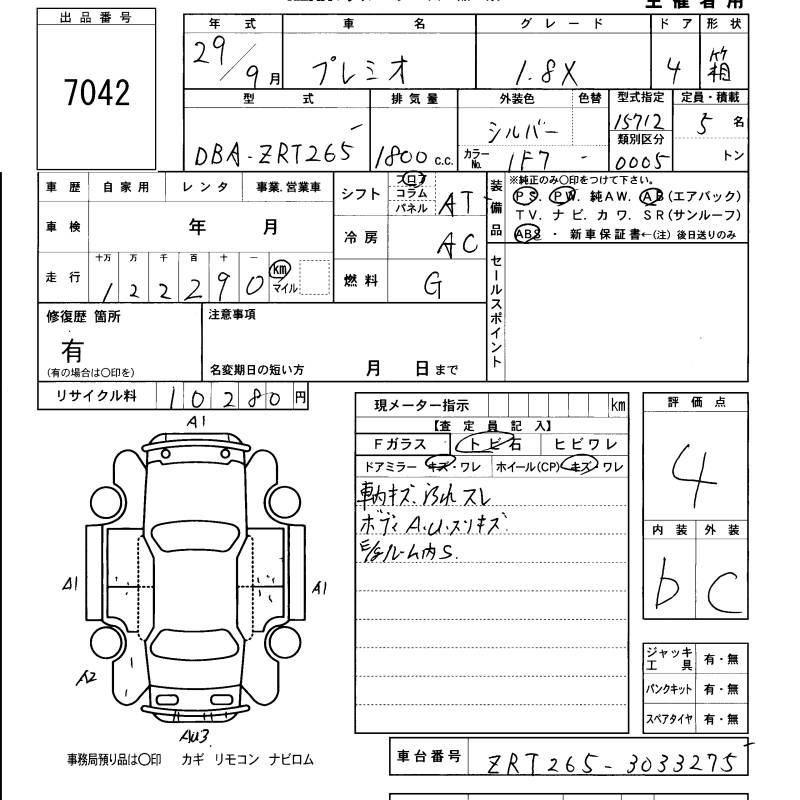 主催者用
出品番号
7042
年式 車名 グレード ドア 形状
29/9月 プレミオ 1.8X 4 箱
型式 排気量 外装色 色替 型式指定 定員・積載
DBA-ZRT265 1800 C.C. シルバー 15712 5名
類別区分
カラーNo. 1F7 - 0005 トン
車歴 自家用 レンタ 事業.営業車
車検 年 月
走行 十万 万 千 百 十 一
122290 km マイル
シフト フロア コラム パネル AT
冷房 AC
燃料 G
装備品
※純正のみ○印をつけて下さい。
PS. PW. 純AW. AB(エアバック)
TV. ナビ. カワ. SR(サンルーフ)
ABS ・ 新車保証書←(注) 後日送りのみ
セールスポイント
修復歴 箇所
有
(有の場合は○印を)
注意事項
名変期日の短い方 月 日まで
リサイクル料 10280円
現メーター指示 km
【査定員記入】
Fガラス トビ石 ヒビワレ
ドアミラー キズ・ワレ ホイール(CP) キズ・ワレ
車内キズ.汚れ スレ
ボディ A.U.スリキズ
E/gルーム内 S.
評価点
4
内装 外装
b C
A1
A1
A1
A2
AU3.
ジャッキ工具 有・無
パンクキット 有・無
スペアタイヤ 有・無
事務局預り品は○印 カギ リモコン ナビロム
車台番号 ZRT265-3033275